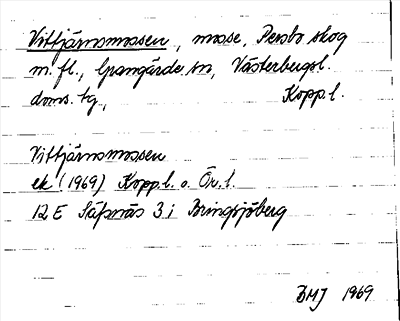 Vittjärnsmossen, mosse, Persbo skog
m. fl., Grangärde sn, Västerbergsl.
doms. tg, Kopp. l.
Vittjärnsmossen
ek (1969) Kopp. l. o. Ör. l.
12 E Säfsnäs 3 i Bringsjöberg
BMJ 1969